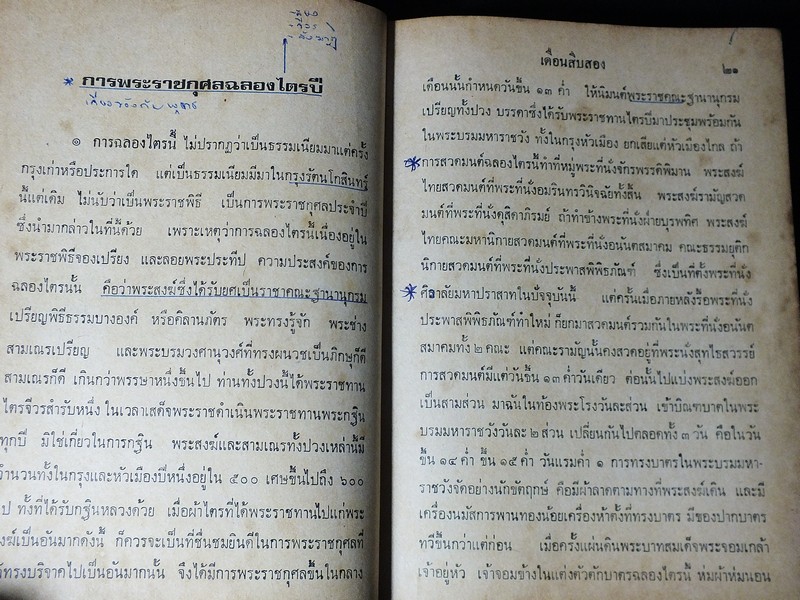 การพระราชกุศลฉลองไตรปี
๑ การฉลองไตรนี้ ไม่ปรากฏว่าเป็นธรรมเนียมมาแต่ครั้ง
กรุงเก่าหรือประการใด แต่เป็นธรรมเนียมมีมาในกรุงรัตนโกสินทร์
นี้แต่เดิม ไม่นับว่าเป็นพระราชพิธี เป็นการพระราชกุศลประจำปี
ซึ่งนำมากล่าวในที่นี้ด้วย เพราะเหตุว่าการฉลองไตรนี้เนื่องอยู่ใน
พระราชพิธีจองเปรียง และลอยพระประทีป ความประสงค์ของการ
ฉลองไตรนั้น คือว่าพระสงฆ์ซึ่งได้รับยศเป็นราชาคณะฐานานุกรม
เปรียญพิธีธรรมบางองค์ หรือคิลานภัตร พระทรงรู้จัก พระช่าง
สามเณรเปรียญ และพระบรมวงศานุวงศ์ที่ทรงผนวชเป็นภิกษุก็ดี
สามเณรก็ดี เกินกว่าพรรษาหนึ่งขึ้นไป ท่านทั้งปวงนี้ได้พระราชทาน
ไตรจีวรสำรับหนึ่ง ในเวลาเสด็จพระราชดำเนินพระราชทานพระกฐิน
ทุกปี มิใช่เกี่ยวในการกฐิน พระสงฆ์และสามเณรทั้งปวงเหล่านี้มี
จำนวนทั้งในกรุงและหัวเมืองปีหนึ่งอยู่ใน ๕๐๐ เศษขึ้นไปถึง ๖๐๐
ป ทั้งที่ได้รับกฐินหลวงด้วย เมื่อผ้าไตรที่ได้พระราชทานไปแก่พระ
งฆ์เป็นอันมากดังนี้ ก็ควรจะเป็นที่ชื่นชมยินดีในการพระราชกุศลที่
ทรงบริจาคไปเป็นอันมากนั้น จึงได้มีการพระราชกุศลขึ้นในกลาง
เดือนสิบสอง ๒๑
เดือนนั้นกำหนดวันขึ้น ๑๓ ค่ำ ให้นิมนต์พระราชคณะฐานานุกรม
เปรียญทั้งปวง บรรดาซึ่งได้รับพระราชทานไตรปีมาประชุมพร้อมกัน
ในพระบรมมหาราชวัง ทั้งในกรุงหัวเมือง ยกเสียแต่หัวเมืองไกล ถ้า
การสวดมนต์ฉลองไตรนี้ทำที่หมู่พระที่นั่งจักรพรรดิพิมาน พระสงฆ์
ไทยสวดมนต์ที่พระที่นั่งอมรินทรวินิจฉัยทั้งสิ้น พระสงฆ์รามัญสวด
มนต์ที่พระที่นั่งดุสิดาภิรมย์ ถ้าทำข้างพระที่นั่งฝ่ายบุรพทิศ พระสงฆ์
ไทยคณะมหานิกายสวดมนต์ที่พระที่นั่งอนันตสมาคม คณะธรรมยุติก
นิกายสวดมนต์ที่พระที่นั่งประพาสพิพิธภัณฑ์ ซึ่งเป็นที่ตั้งพระที่นั่ง
ศิวาลัยมหาปราสาทในปัจจุบันนี้ แต่ครั้งเมื่อภายหลังรื้อพระที่นั่ง
ประพาสพิพิธภัณฑ์ทำใหม่ ก็ยกมาสวดมนต์รวมกันในพระที่นั่งอนันต
สมาคมทั้ง ๒ คณะ แต่คณะรามัญนั้นคงสวดอยู่ที่พระนั่งสุทไธสวรรย์
การสวดมนต์มีแต่วันขึ้น ๑๓ ค่ำวันเดียว ต่อนั้นไปแบ่งพระสงฆ์ออก
เป็นสามส่วน มาฉันในท้องพระโรงวันละส่วน เข้าบิณฑบาตในพระ
บรมมหาราชวังวันละ ๒ ส่วน เปลี่ยนกันไปตลอดทั้ง ๓ วัน คือในวัน
ขึ้น ๑๔ ค่ำ ขึ้น ๑๕ ค่ำ วันแรมค่ำ ๑ การทรงบาตรในพระบรมมหา-
ราชวังจัดอย่างนักขัตฤกษ์ คือมีผ้าลาดตามทางที่พระสงฆ์เดิน และมี
เครื่องนมัสการพานทองน้อยเครื่องห้าตั้งที่ทรงบาตร มีของปากบาตร
ทวีขึ้นกว่าแต่ก่อน เมื่อครั้งแผ่นดินพระบาทสมเด็จพระจอมเกล้า
เจ้าอยู่หัว เจ้าจอมข้างในแต่งตัวตักบาตรฉลองไตรนี้ ห่มผ้าห่มนอน